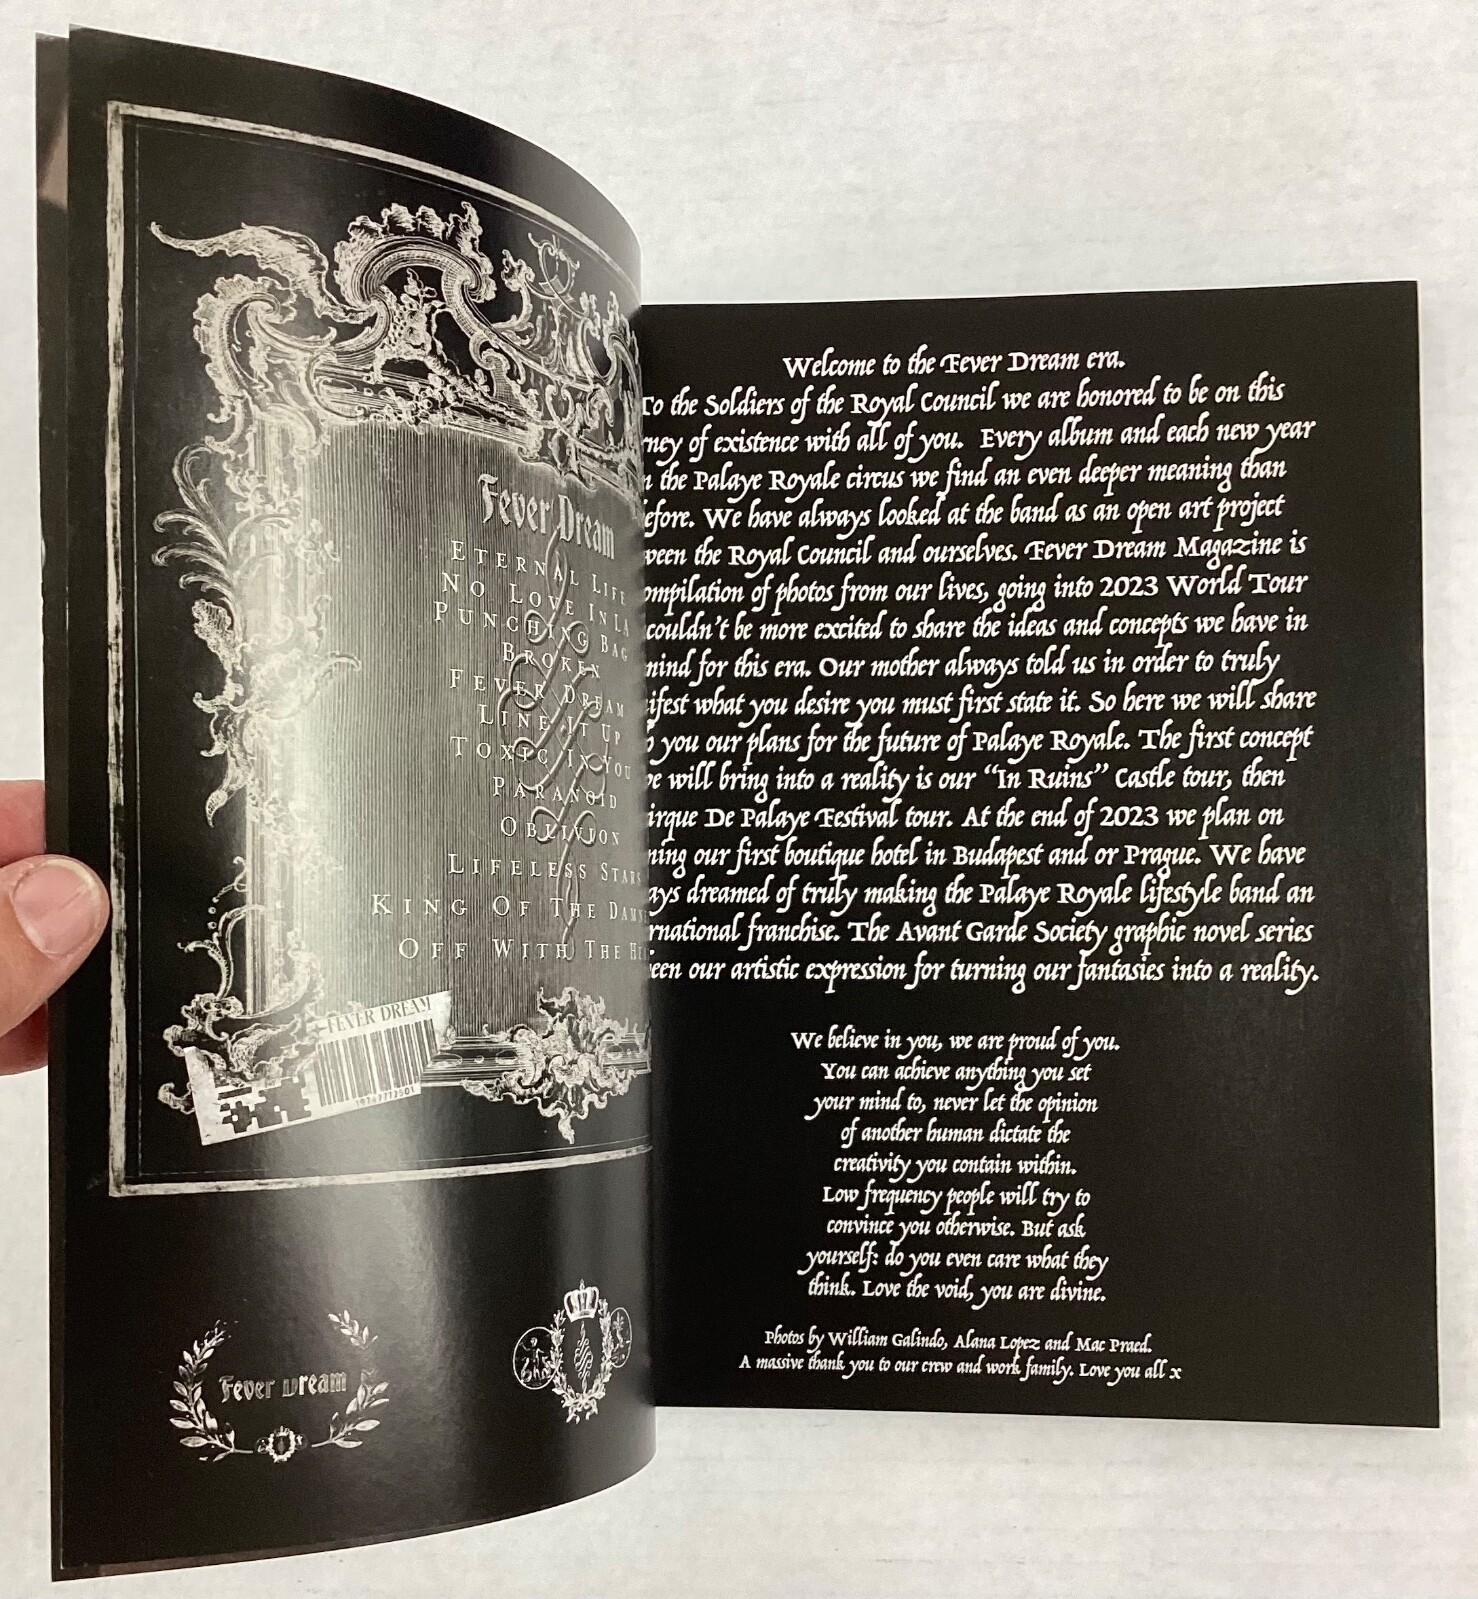 Fever Dream
ETERNAL LIFE
NO LOVE IN LA
PUNCHING BAG
BROKEN
FEVER DREAM
LINE IT UP
TOXIC IN YOU
PARANOID
OBLIVION
LIFELESS STARS
KING OF THE DAMN
OFF WITH THE HE
FEVER DREAM
Fever Dream
Welcome to the Fever Dream era.
To the Soldiers of the Royal Council we are honored to be on this
rney of existence with all of you. Every album and each new year
n the Palaye Royale circus we find an even deeper meaning than
efore. We have always looked at the band as an open art project
ween the Royal Council and ourselves. Fever Dream Magazine is
ompilation of photos from our lives, going into 2023 World Tour
couldn't be more excited to share the ideas and concepts we have in
mind for this era. Our mother always told us in order to truly
ifest what you desire you must first state it. So here we will share
h you our plans for the future of Palaye Royale. The first concept
we will bring into a reality is our “In Ruins” Castle tour, then
irque De Palaye Festival tour. At the end of 2023 we plan on
ning our first boutique hotel in Budapest and or Prague. We have
ays dreamed of truly making the Palaye Royale lifestyle band an
rnational franchise. The Avant Garde Society graphic novel series
een our artistic expression for turning our fantasies into a reality.
We believe in you, we are proud of you.
You can achieve anything you set
your mind to, never let the opinion
of another human dictate the
creativity you contain within.
Low frequency people will try to
convince you otherwise. But ask
yourself: do you even care what they
think. Love the void, you are divine.
Photos by William Galindo, Alana Lopez and Mac Praed.
A massive thank you to our crew and work family. Love you all x